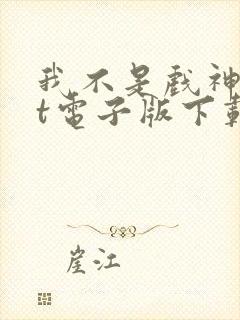 我不是戏神
t電子版下載
崖江